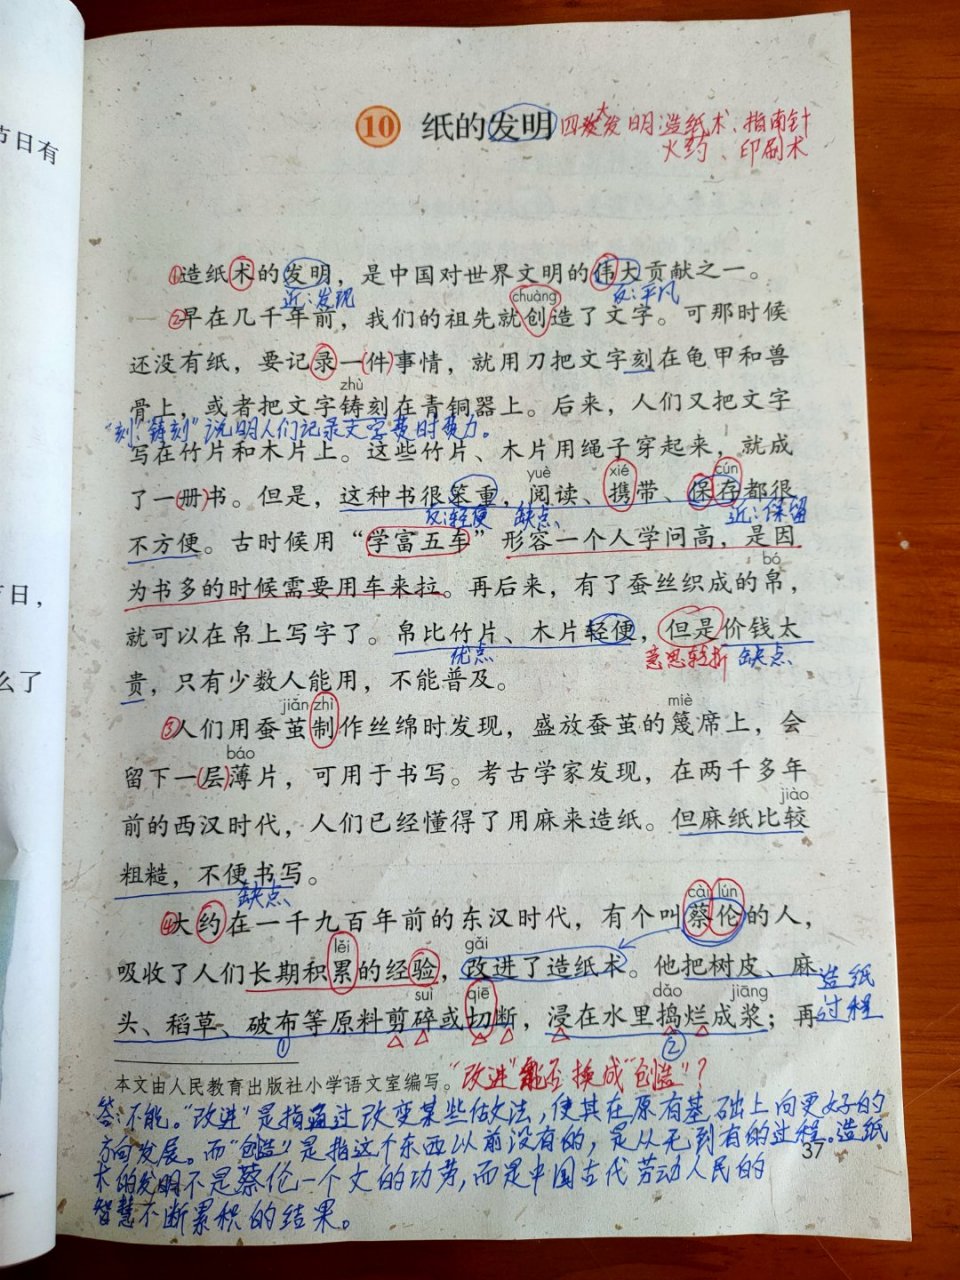 节日有
节日，
么了
10 纸的发明 四大发明:造纸术、指南针
火药、印刷术
①造纸术的发明，是中国对世界文明的伟大贡献之一。
近:发现 反:平凡
chuàng
②早在几千年前，我们的祖先就创造了文字。可那时候
还没有纸，要记录一(件)事情，就用刀把文字刻在龟甲和兽
zhù
骨上，或者把文字铸刻在青铜器上。后来，人们又把文字
“刻”“铸刻”说明人们记录文字费时费力。
写在竹片和木片上。这些竹片、木片用绳子穿起来，就成
yuè xié cún
了一(册)书。但是，这种书很笨重，阅读、携带、保存都很
反:轻便 缺点、 近:保留
不方便。古时候用“学富五车”形容一个人学问高，是因
bó
为书多的时候需要用车来拉。再后来，有了蚕丝织成的帛，
就可以在帛上写字了。帛比竹片、木片轻便，但是价钱太
优点 意思转折 缺点
贵，只有少数人能用，不能普及。
jiǎn zhì miè
③人们用蚕茧制作丝绵时发现，盛放蚕茧的篾席上，会
báo
留下一(层)薄片，可用于书写。考古学家发现，在两千多年
jiào
前的西汉时代，人们已经懂得了用麻来造纸。但麻纸比较
粗糙，不便书写。
缺点
cài lún
④大约在一千九百年前的东汉时代，有个叫蔡伦的人，
lěi gǎi
吸收了人们长期积累的经验，改进了造纸术。他把树皮、麻
造纸
suì qiē dǎo jiāng
头、稻草、破布等原料剪碎或切断，浸在水里捣烂成浆；再
过程
① ②
本文由人民教育出版社小学语文室编写。“改进”能否换成“创造”?
答:不能。“改进”是指通过改变某些做法,使其在原有基础上向更好的
方向发展。而“创造”是指这个东西以前没有的,是从无到有的过程。造纸
37
术的发明不是蔡伦一个文的功劳,而是中国古代劳动人民的
智慧不断累积的结果。